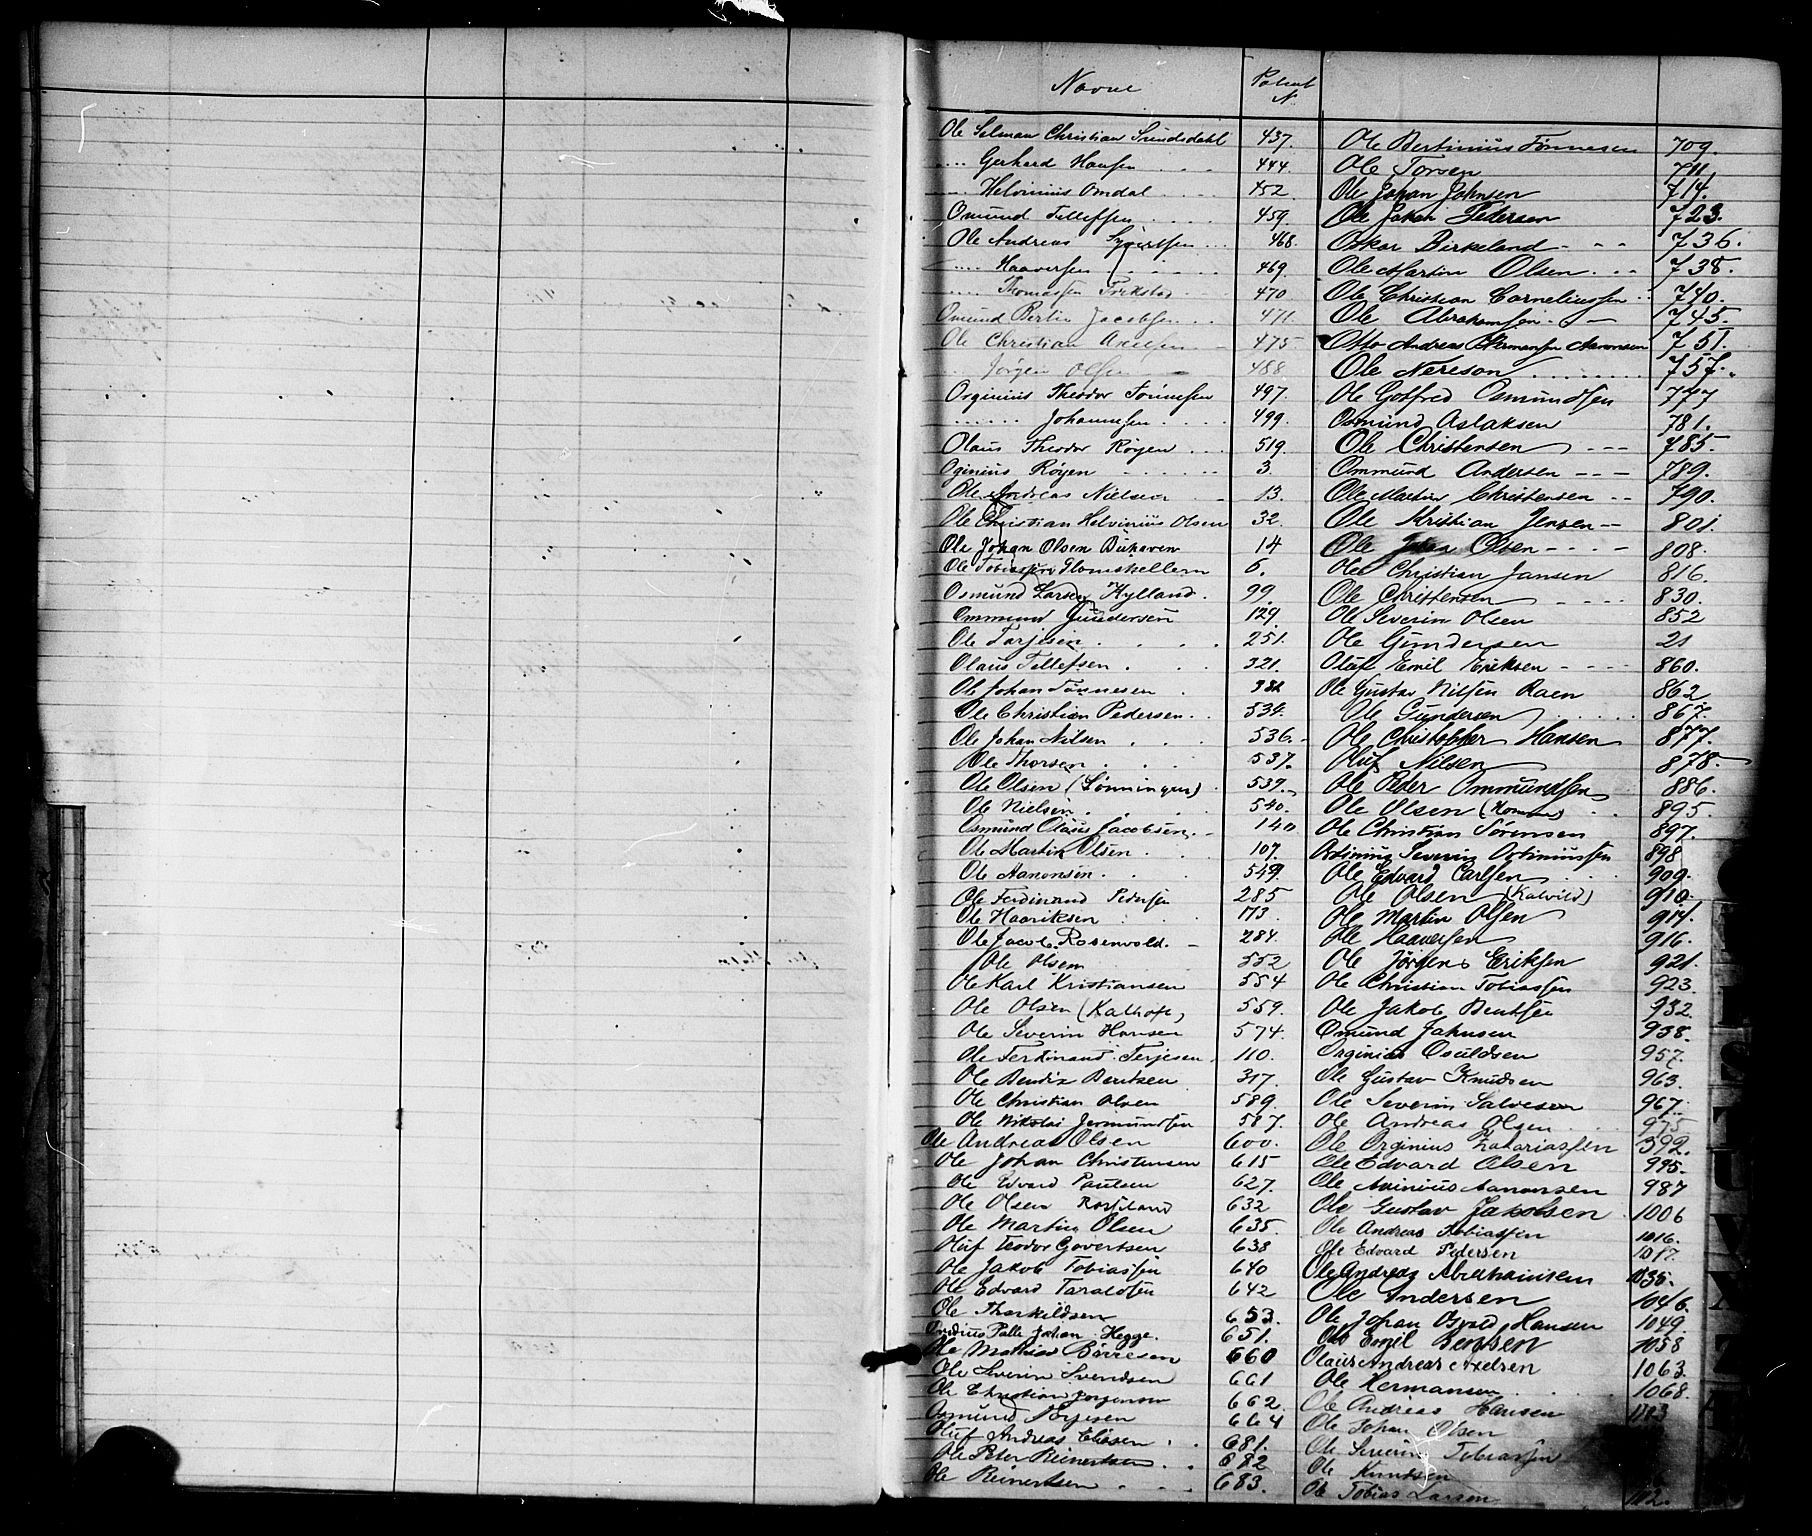 Navne Patent N.
Ole Selman Christian Smidsdahl 437.
.... Gerhard Hansen 444.
.... Helvinius Omdal 452.
Omund Tellefsen 459.
Ole Andreas Syvertsen 468.
.... Haaversen 469.
.... Thomassen Frikstad 470
Omund Bertin Jacobsen 471.
Ole Christian Axelsen 475
Jörgen Olsen 488
Orginius Theodor Tönnesen 497.
...... Johannesen 499.
Olaus Theodor Röyen 519.
Oginius Röyen 3.
Ole Andreas Nielsen 13.
Ole Christian Helvinius Olsen 32.
Ole Johan Olsen Buhaven 14
Ole Tobiassen Flomskellern 6.
Osmund Larsen Hylland 99.
Ommund Gundersen 129.
Ole Tarjesen 251.
Olaus Tellefsen 321.
Ole Johan Tönnesen 382
Ole Christian Pedersen 534.
Ole Johan Nilsen 536.
Ole Thorsen 537.
Ole Olsen (Lönningen) 539.
Ole Nielsen 540.
Osmund Olaus Jacobsen 140
Ole Martin Olsen 107.
Ole Aanonsen 549.
Ole Ferdinand Pedersen 285
Ole Haariksen 173.
Ole Jacob Rosenvold 284.
Ole Olsen 552
Ole Karl Kristiansen 554
Ole Olsen (Kalhoft) 559.
Ole Severin Hansen 574.
Ole Ferdinand Terjesen 110.
Ole Bendix Bentsen 317.
Ole Christian Olsen 589.
Ole Nikolai Jermundsen 587.
Ole Andreas Olsen 600.
Ole Johan Christensen 615
Ole Edvard Paulsen 627.
Ole Olsen Rossland 632
Ole Martin Olsen 635.
Oluf Teodor Govertsen 638
Ole Jakob Tobiassen 640
Ole Edvard Taraldsen 642
Ole Thorkildsen 653.
Ovidius Palle Johan Hegge. 651.
Ole Mathias Börresen 660
Ole Severin Svendsen 661
Ole Christian Jörgensen 662.
Osmund Terjesen 664
Oluf Andreas Eliasen 681.
Ole Peter Reinertsen 682
Ole Reinertsen 683.
Ole Bertinius Tönnesen 709.
Ole Torsen 711
Ole Johan Johnsen 714.
Ole Johan Pedersen 723.
Oskar Birkeland 736.
Ole Martin Olsen 738.
Ole Christian Corneliussen 740.
Ole Abrahamsen 745.
Otto Andreas Hermansen Aanonsen 751.
Ole Nereson 757.
Ole Gotfred Osmundsen 777
Osmund Aslaksen 781.
Ole Christensen 785.
Ommund Andersen 789.
Ole Martin Christensen 790.
Ole Kristian Jensen 801.
Ole Olsen 808.
Ole Christian Jansen 816.
Ole Christensen 830.
Ole Severin Olsen 852
Ole Gundersen 21
Oluf Emil Eriksen 860.
Ole Gustav Nilsen Raen 862
Ole Gundersen 867.
Ole Christopher Hansen 877.
Oluf Nilsen 878.
Ole Peder Ommundsen 886.
Ole Olsen (Homme) 895.
Ole Christian Sörensen 897.
Ortinius Severin Ortiniussen 898
Ole Edvard Carlsen 909.
Ole Olsen (Kalvild) 910.
Ole Martin Olsen 914.
Ole Haaversen 916.
Ole Jörgen Eriksen 921.
Ole Christian Tobiassen 923.
Ole Jakob Bentsen 932.
Omund Jahnsen 938.
Orginius Osuldsen 957.
Ole Gustav Knudsen 963.
Ole Severin Salvesen 967.
Ole Andreas Olsen 975
Ole Orginius Zakariassen 392.
Ole Edvard Olsen 995.
Ole Avinius Aanonsen 987
Ole Gustav Jakobsen 1006
Ole Andreas Tobiassen 1016.
Ole Edvard Pedersen 1017.
Ole Andreas Abrahamsen 1035.
Ole Andersen 1046.
Ole Johan Osvald Hansen 1049
Ole Emil Bentsen 1058
Olaus Andreas Axelsen 1063.
Ole Hermansen 1068.
Ole Andreas Hansen 1103
Ole Johan Olsen
Ole Severin Tobiassen
Ole Knudsen
Ole Tobias Larsen
S
T
U
V
X
Z